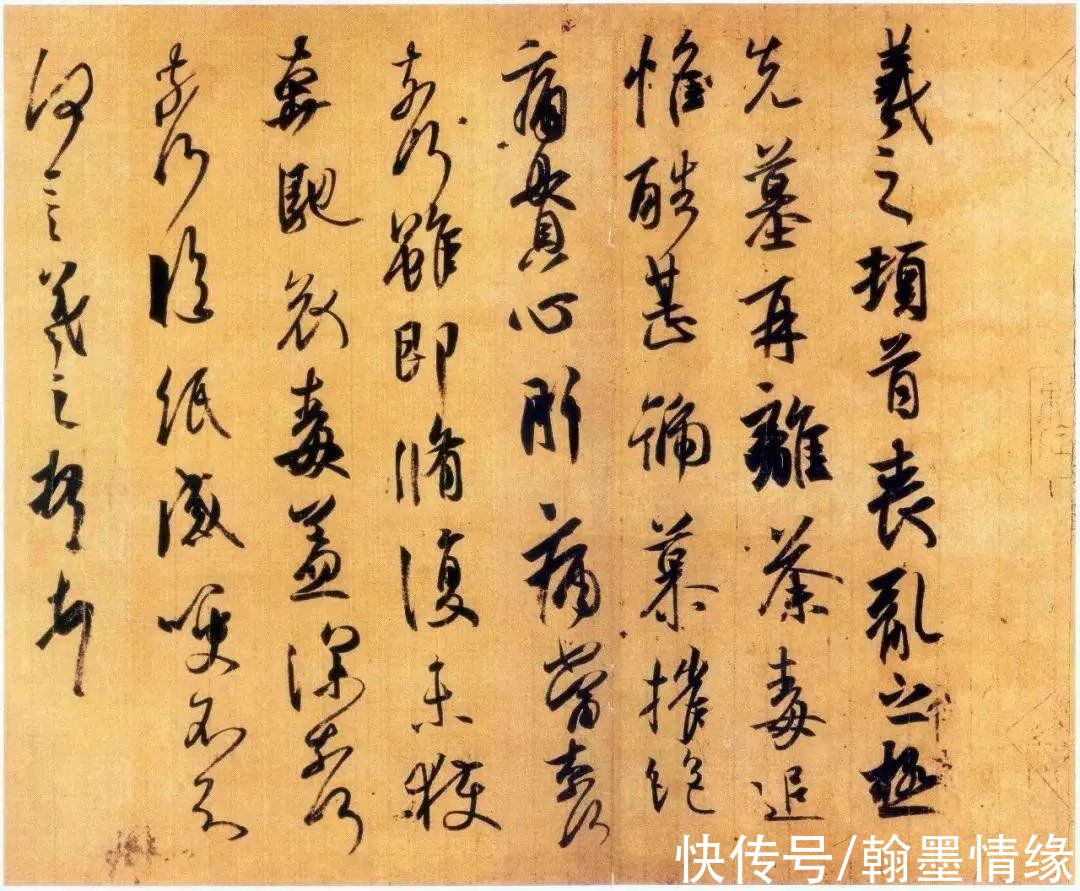 羲之頓首喪亂之極
先墓再離荼毒追
惟酷甚號慕摧絕
痛貫心肝痛當奈何
奈何雖即脩復未獲
奔馳哀毒益深奈何
奈何臨紙感哽不知
何言羲之頓首頓首
快传号/翰墨情缘